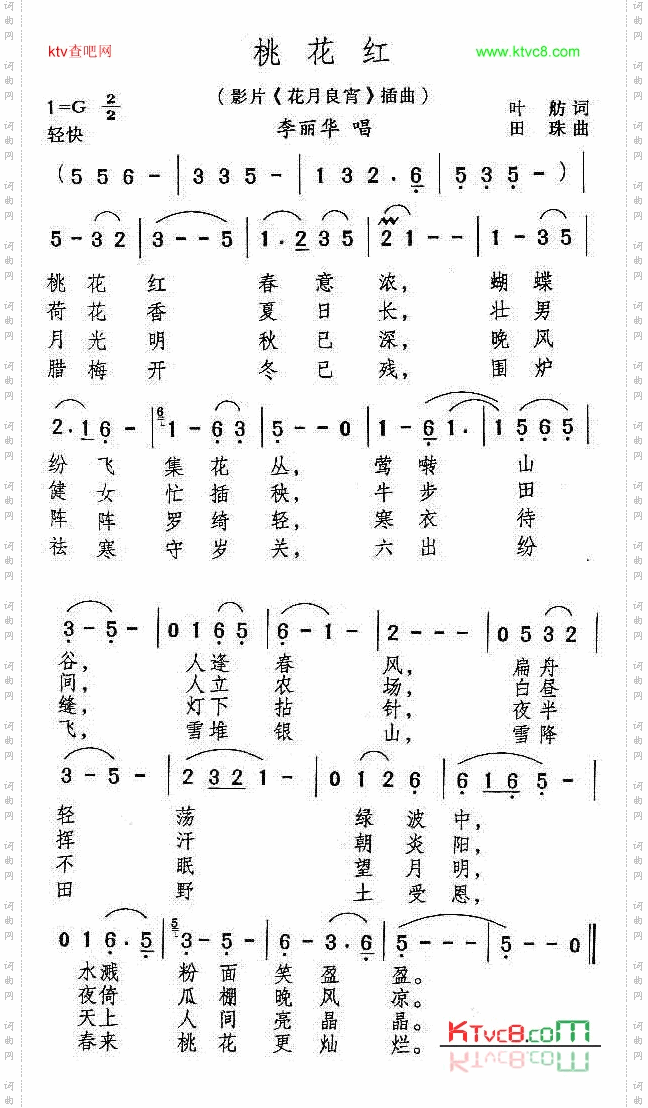 ktv查吧网
桃花红
www.ktvc8.com
(影片《花月良宵》插曲)
1=G 2/2
叶舫词
轻快
李丽华 唱
田珠曲
(5 5 6 - | 3 3 5 - | 1 3 2 . 6 | 5 3 5 - ) |
5 - 3 2 | 3 - - 5 | 1 . 2 3 5 | 2 1 - - | 1 - 3 5 |
桃花红 春意浓, 蝴蝶
荷花香 夏日长, 壮男
月光明 秋已深, 晚风
腊梅开 冬已残, 围炉
2 . 1 6 - | 6 1 - 6 3 | 5 - - 0 | 1 - 6 1 . | 1 5 6 5 |
纷飞集花丛, 莺啭山
健女忙插秧, 牛步田
阵阵罗绮轻, 寒衣待
祛寒守岁关, 六出纷
3 - 5 - | 0 1 6 5 | 6 - 1 - | 2 - - - | 0 5 3 2 |
谷, 人逢春风, 扁舟
间, 人立农场, 白昼
缝, 灯下拈针, 夜半
飞, 雪堆银山, 雪降
3 - 5 - | 2 3 2 1 - | 0 1 2 6 | 6 1 6 5 - |
轻荡 绿波中,
挥汗 朝炎阳,
不眠 望月明,
田野 土受恩,
0 1 6 . 5 | 5 3 - 5 - | 6 - 3 . 6 | 5 - - - | 5 - - 0 ||
水溅粉面笑盈盈。
夜倚瓜棚晚风凉。
天上人间亮晶晶。
春来桃花更灿烂。
KTvc8.com
词曲网